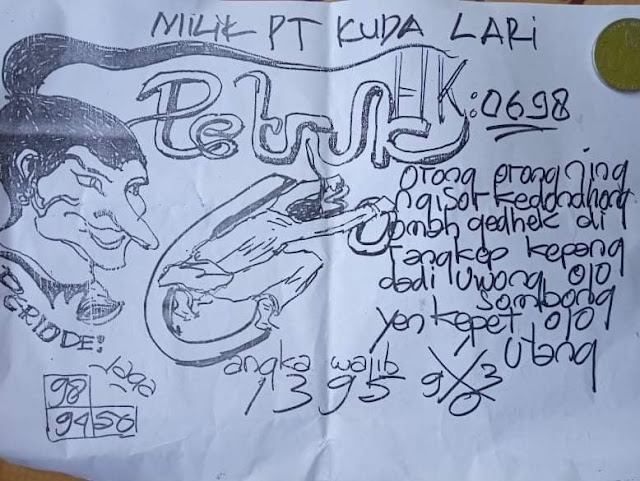 MILIK PT KUDA LARI
Petruk HK: 0698
orong orong ning
ngisor kedondhong
ombh gedhek di
tangkep kepang
dadi uwong ojo
sombong
yen kepet ojo
utang
PERIODE:
Jaga
98
94 56
angka wajib
1395
9 3
0